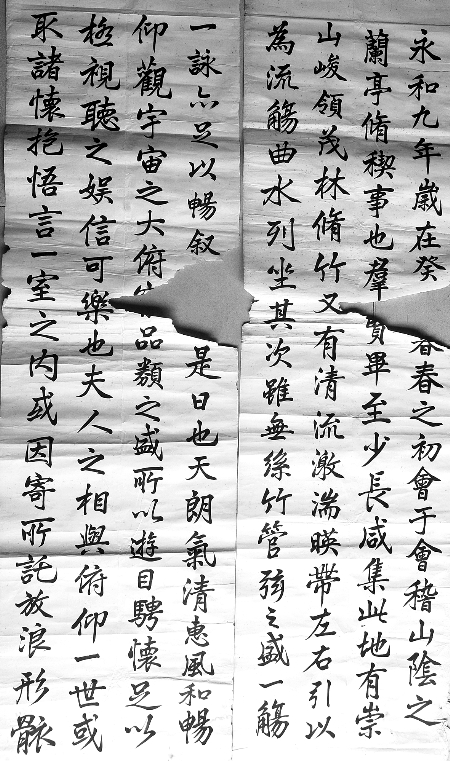 永和九年歲在癸春之初會于會稽山陰之
蘭亭脩稧事也羣賢畢至少長咸集此地有崇
山峻領茂林脩竹又有清流激湍暎帶左右引以
為流觴曲水列坐其次雖無絲竹管弦之盛一觴
一詠亦足以暢叙是日也天朗氣清惠風和暢
仰觀宇宙之大俯品類之盛所以遊目騁懷足以
極視聽之娛信可樂也夫人之相與俯仰一世或
取諸懷抱悟言一室之內或因寄所託放浪形骸